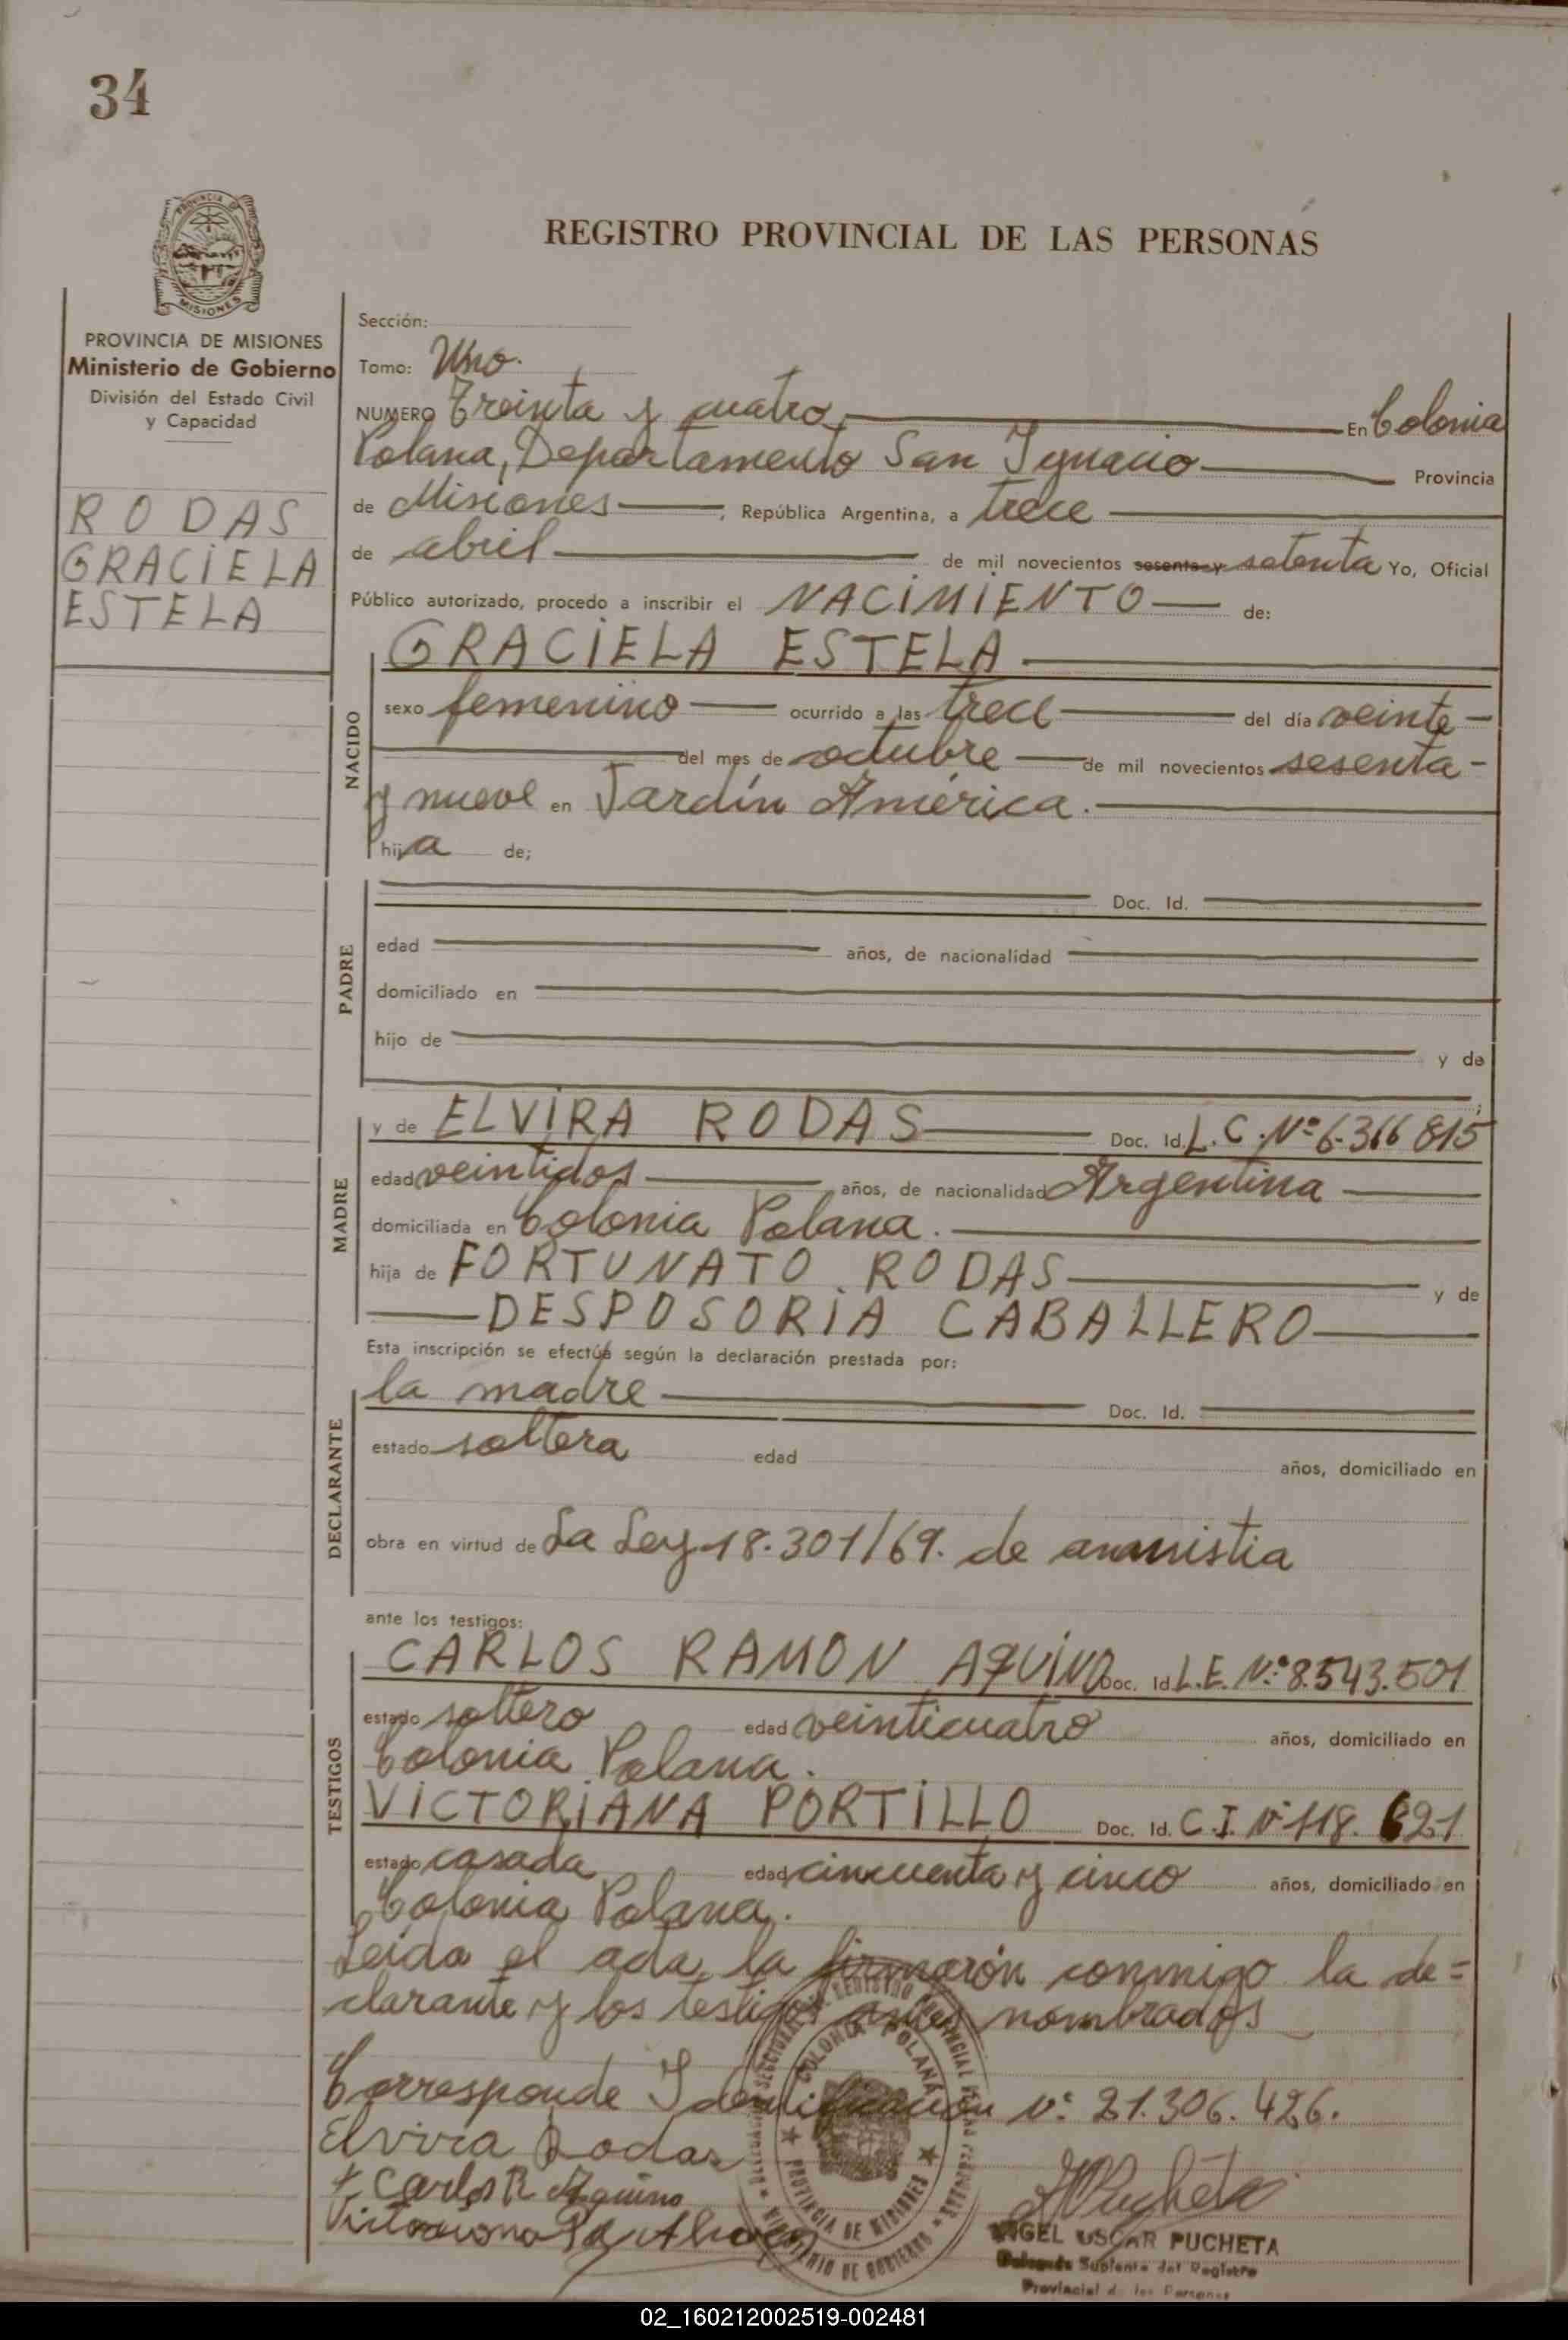 34
PROVINCIA DE
MISIONES
REGISTRO PROVINCIAL DE LAS PERSONAS
PROVINCIA DE MISIONES
Ministerio de Gobierno
División del Estado Civil
y Capacidad
RODAS
GRACIELA
ESTELA
Sección:
Tomo: Uno.
NUMERO Treinta y cuatro En Colonia
Polana, Departamento San Ignacio Provincia
de Misiones, República Argentina, a trece
de abril de mil novecientos sesenta y setenta Yo, Oficial
Público autorizado, procedo a inscribir el NACIMIENTO de:
NACIDO
GRACIELA ESTELA
sexo femenino ocurrido a las trece del día veinte
del mes de octubre de mil novecientos sesenta
y nueve en Jardín América.
hija de;
PADRE
Doc. Id.
edad años, de nacionalidad
domiciliado en
hijo de y de
;
MADRE
y de ELVIRA RODAS Doc. Id. L.C. Nº 6.366815
edad veintidos años, de nacionalidad Argentina
domiciliada en Colonia Polana.
hija de FORTUNATO RODAS y de
DESPOSORIA CABALLERO
Esta inscripción se efectúa según la declaración prestada por:
DECLARANTE
la madre Doc. Id.
estado soltera edad años, domiciliado en
obra en virtud de La Ley 18.301/69. de amnistia
ante los testigos:
TESTIGOS
CARLOS RAMON AQUINO Doc. Id. L.E. Nº 8.543.501
estado soltero edad veinticuatro años, domiciliado en
Colonia Polana.
VICTORIANA PORTILLO Doc. Id. C.I. Nº 118.621
estado casada edad cincuenta y cinco años, domiciliado en
Colonia Polana.
Leída el acta, la firmarón conmigo la de=
clarante y los testigos antes nombrados
Corresponde Identificación Nº 21.306.426.
Elvira Rodas
Carlos R Aquino
COLONIA POLANA
PROVINCIA DE MISIONES
MINISTERIO DE GOBIERNO
OSCAR PUCHETA
Suplente del Registro
Provincial de las Personas
02_160212002519-002481